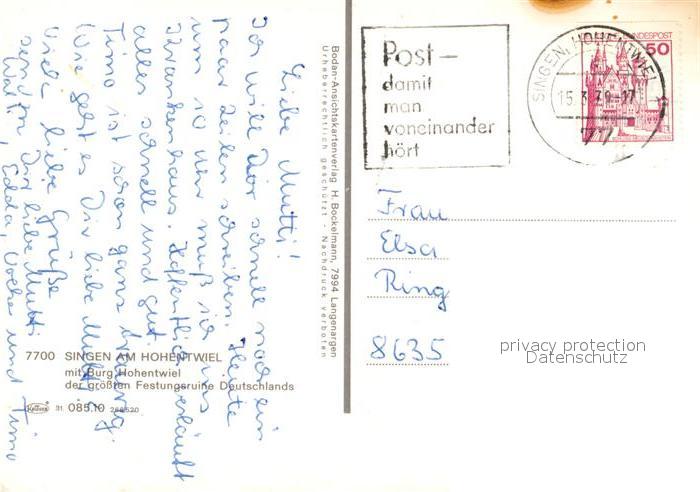 Liebe Mutti!
Ich will Dir schnell noch ein
paar Zeilen schreiben. Heute
um 10 Uhr muß ich ins
Krankenhaus. Hoffentlich verläuft
alles schnell und gut.
Timo ist schon ganz
Wie geht es Dir liebe Mutti?
Viele liebe Grüße
senden Dir liebe Mutti
Edda, und Timo
7700 SINGEN AM HOHENTWIEL
mit Burg Hohentwiel
der größten Festungsruine Deutschlands
31 085.10
Bodan-Ansichtskartenverlag H. Bockelmann, 7994 Langenargen
Urheberrechtlich geschützt - Nachdruck verboten
Post-
damit
man
voneinander
hört
SINGEN, HOHENTWIEL
77
DEUTSCHE BUNDESPOST
50
Frau
Elsa
Ring
8635
privacy protection
Datenschutz